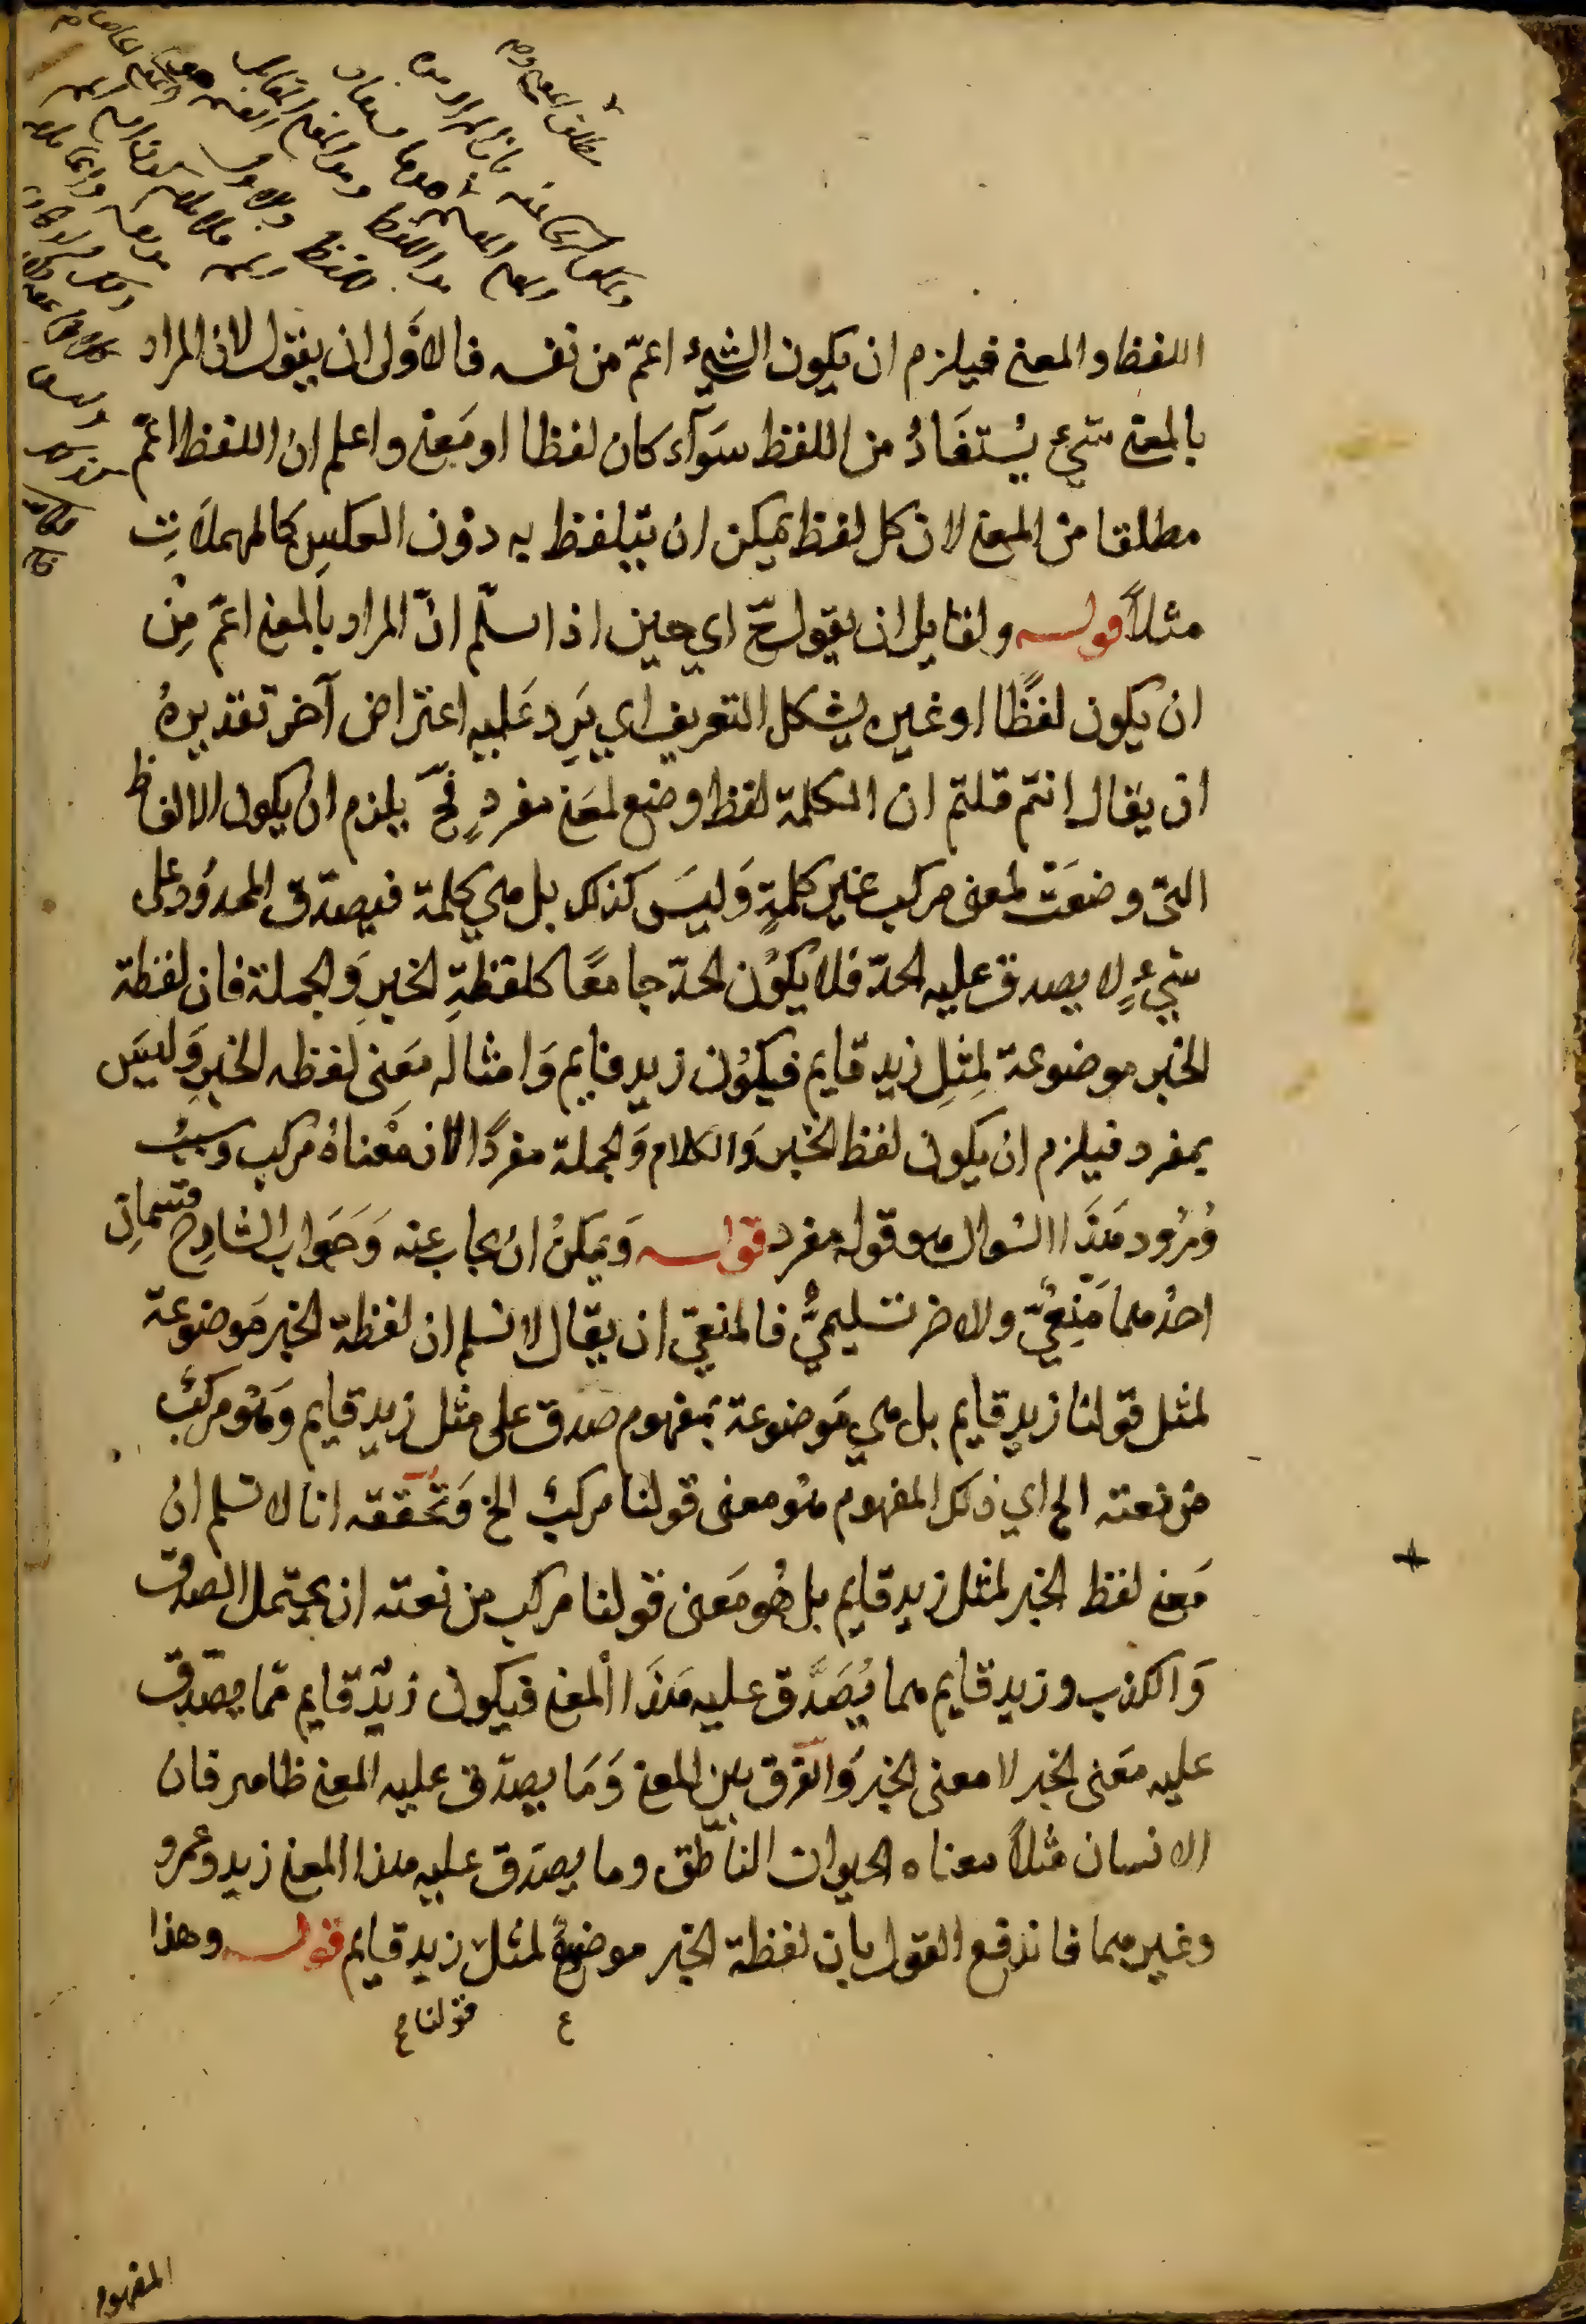 اللفظ والمعنى فيلزم ان يكون الشيء اعمّ من نفسه فالاَولى ان يقول لان المراد
بالمعنى شيء يُستفَادُ من اللفظ سَوآء كان لفظا او مَعنى واعلم ان اللفظ اعمّ
مطلقا من المعنى لان كل لفظ يمكن ان يتلفظ به دوْن العكسِ كالمهملاَتِ
مثلاً قوله ولقايل ان يقول حّ اي حين اذا سلّم انّ المراد بالمعنى اعمّ مِنْ
ان يكون لفظًا او غيره يشكل التعريف اي يَرِد عَليه اعتراض آخر تقديرهُ
ان يقال انتم قلتم ان الكلمة لفظ وضع لمعَنى مفردٍ فحّ يلزم ان يكون الالفاظ
التى وضعَتْ لمعنى مركب غير كلمةٍ وَليسَ كذلك بل هي كلمة فيصدّق المحدوُد على
شيءٍ لا يصدق عليه الحدّ فلا يكوُن الحدّ جامعًا كلفظةِ الخبرِ وَالجملة فان لفظة
الخبر موضوعة لِمثِلِ زيد قايم فيكوُن زيد قايم وَامثاله مَعنى لفظه الخبرِ وَليسَ
بمفرد فيلزم ان يكون لفظ الخبر وَالكلام وَالجملة مفردًا لان مَعْناهُ مركب وسببُ
وُرُود هَذَا السُوال هو قوله مفرد قوله وَيمكنُ انْ يجاب عنه وَجَواب الشارح قسمانِ
احدُهما مَنعِيّ والاخر تسليميٌّ فالمنعيّ ان يقال لا نسلم ان لفظة الخبر مَوضوعة
لمثل قولنا زيد قايم بل هي مَوضوعة بمفهوم صدق على مثل زيد قايم وَهُو مركبٌ
من نعته الخ اي ذلك المفهوم هُو معنى قولنا مركبٌ الخ وَتحققه انا لا نسلم ان
مَعنى لفظ الخبر لمثل زيد قايم بل هُو مَعنى قولنا مركب من نعته ان يحتمل الصدق
وَالكذب وزيد قايم مما يُصَدَّق عليه هَذَا المعنى فيكون زيدٌ قايم ممّا يصدق
عليه مَعنى الخبر لا معنى الخبر وَالفرق بين المعنى وَمَا يصدّق عليه المعنى ظاهر فان
الانسان مثلاً معناه الحيوان الناطق وما يصدّق عليه هذا المعنى زيد وعمرو
وغيرهما فاندفع القول بان لفظة الخبر موضوعة لمثل زيد قايم قوله وهذا
قولنا
المفهوم